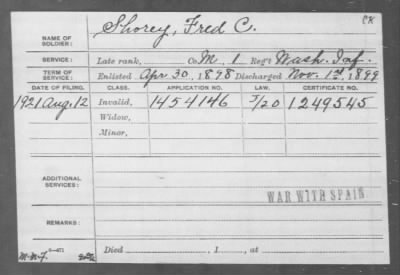 CK
NAME OF SOLDIER: Shorey, Fred C.
SERVICE: Late rank, Co. M, 1 Reg't Wash. Inf.
TERM OF SERVICE: Enlisted Apr 30, 1898 Discharged Nov. 1st, 1899
DATE OF FILING. CLASS. APPLICATION NO. LAW. CERTIFICATE NO.
1921 Aug. 12 Invalid, 1454146 5/20 1249545
Widow,
Minor,
ADDITIONAL SERVICES:
WAR WITH SPAIN
REMARKS:
Died , 1 , at